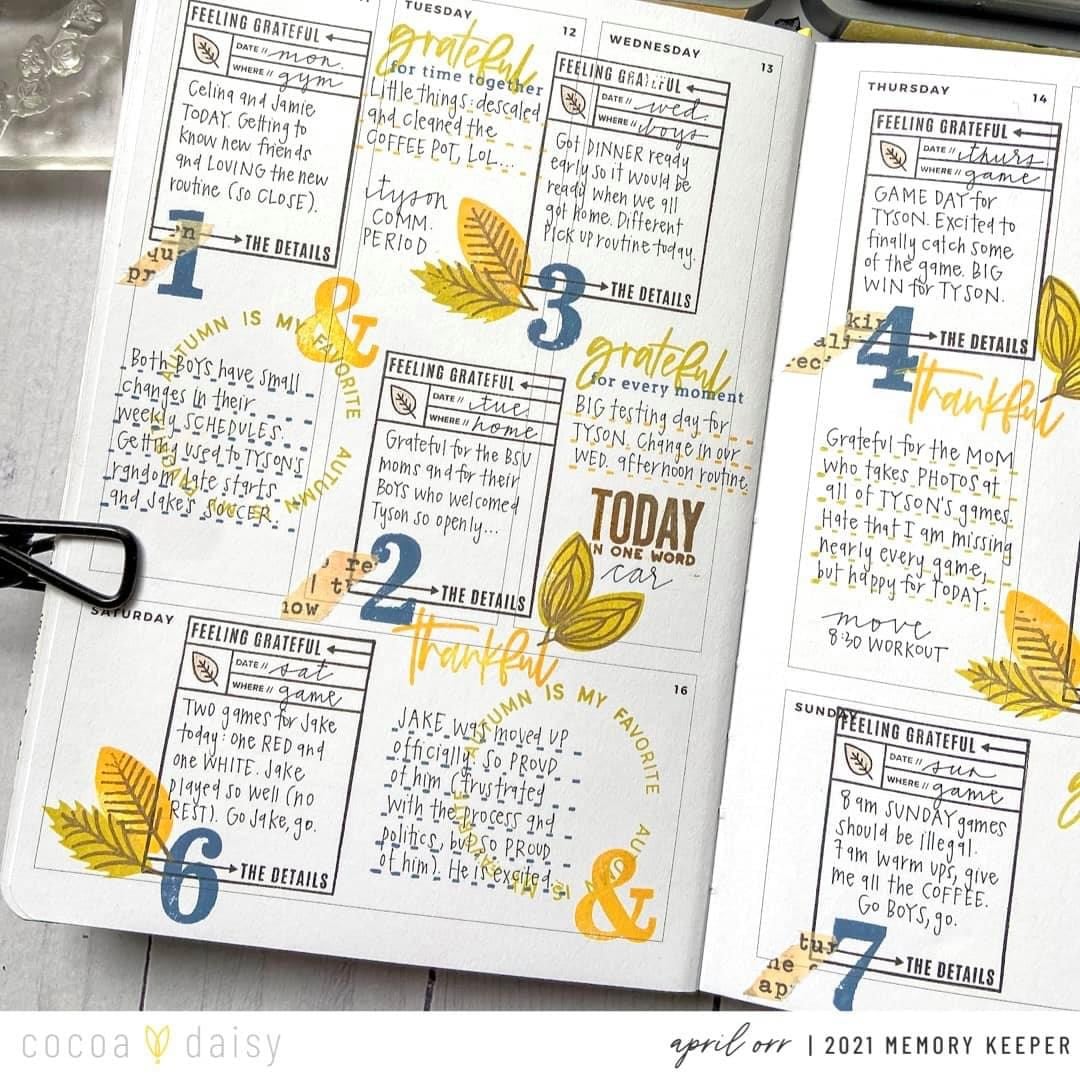 TUESDAY
12
WEDNESDAY
13
FEELING GRATEFUL
DATE // mon.
WHERE // gym
Celina and Jamie
TODAY. Getting to
know new friends
and LOVING the new
routine (so CLOSE).
THE DETAILS
1
pr
&
AUTUMN IS MY FAVORITE AUTUMN IS MY FAVORITE
Both BOYS have small
changes in their
weekly SCHEDULES.
Getting used to TYSON'S
random late starts
and Jake's SOCCER.
grateful
for time together
Little things: descaled
and cleaned the
COFFEE POT, LOL...
tyson
COMM.
PERIOD
FEELING GRATEFUL
DATE // tue.
WHERE // home
Grateful for the BSU
moms and for their
BOYS who welcomed
Tyson so openly...
THE DETAILS
re
now
2
FEELING GRATEFUL
DATE // wed.
WHERE // boys
Got DINNER ready
early so it would be
ready when we all
got home. Different
Pick up routine today.
THE DETAILS
3
grateful
for every moment
BIG testing day for
TYSON. Change in our
WED. afternoon routine.
TODAY
IN ONE WORD
car
THURSDAY
14
FEELING GRATEFUL
DATE // thurs.
WHERE // game
GAME DAY for
TYSON. Excited to
finally catch some
of the game. BIG
WIN for TYSON.
THE DETAILS
4
thankful
Grateful for the MOM
who takes PHOTOS at
all of TYSON'S games.
Hate that I am missing
nearly every game,
but happy for TODAY.
move
8:30 WORKOUT
SATURDAY
16
FEELING GRATEFUL
DATE // sat
WHERE // game
Two games for Jake
today: one RED and
one WHITE. Jake
played so well (no
REST). Go Jake, go.
THE DETAILS
6
thankful
AUTUMN IS MY FAVORITE AUTUMN IS MY FAVORITE
JAKE was moved up
officially. So PROUD
of him (frustrated
with the process and
politics, but so PROUD
of him). He is excited.
&
SUNDAY
FEELING GRATEFUL
DATE // sun
WHERE // game
8 am SUNDAY games
should be illegal.
7am warm ups, give
me all the COFFEE.
Go BOYS, go.
THE DETAILS
tur
ne
ap
7
cocoa daisy
april orr | 2021 MEMORY KEEPER